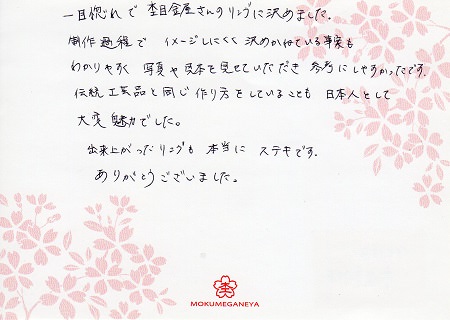 一目惚れで 杢目金屋さんのリングに決めました。
制作過程で イメージしにくく 決めかねている事実も
わかりやすく 写真や見本を見せていただき 参考にしやすかったです。
伝統工芸品と同じ作り方をしていることも 日本人として
大変魅力でした。
出来上がったリングも 本当に ステキです.
ありがとうございました。
MOKUMEGANEYA